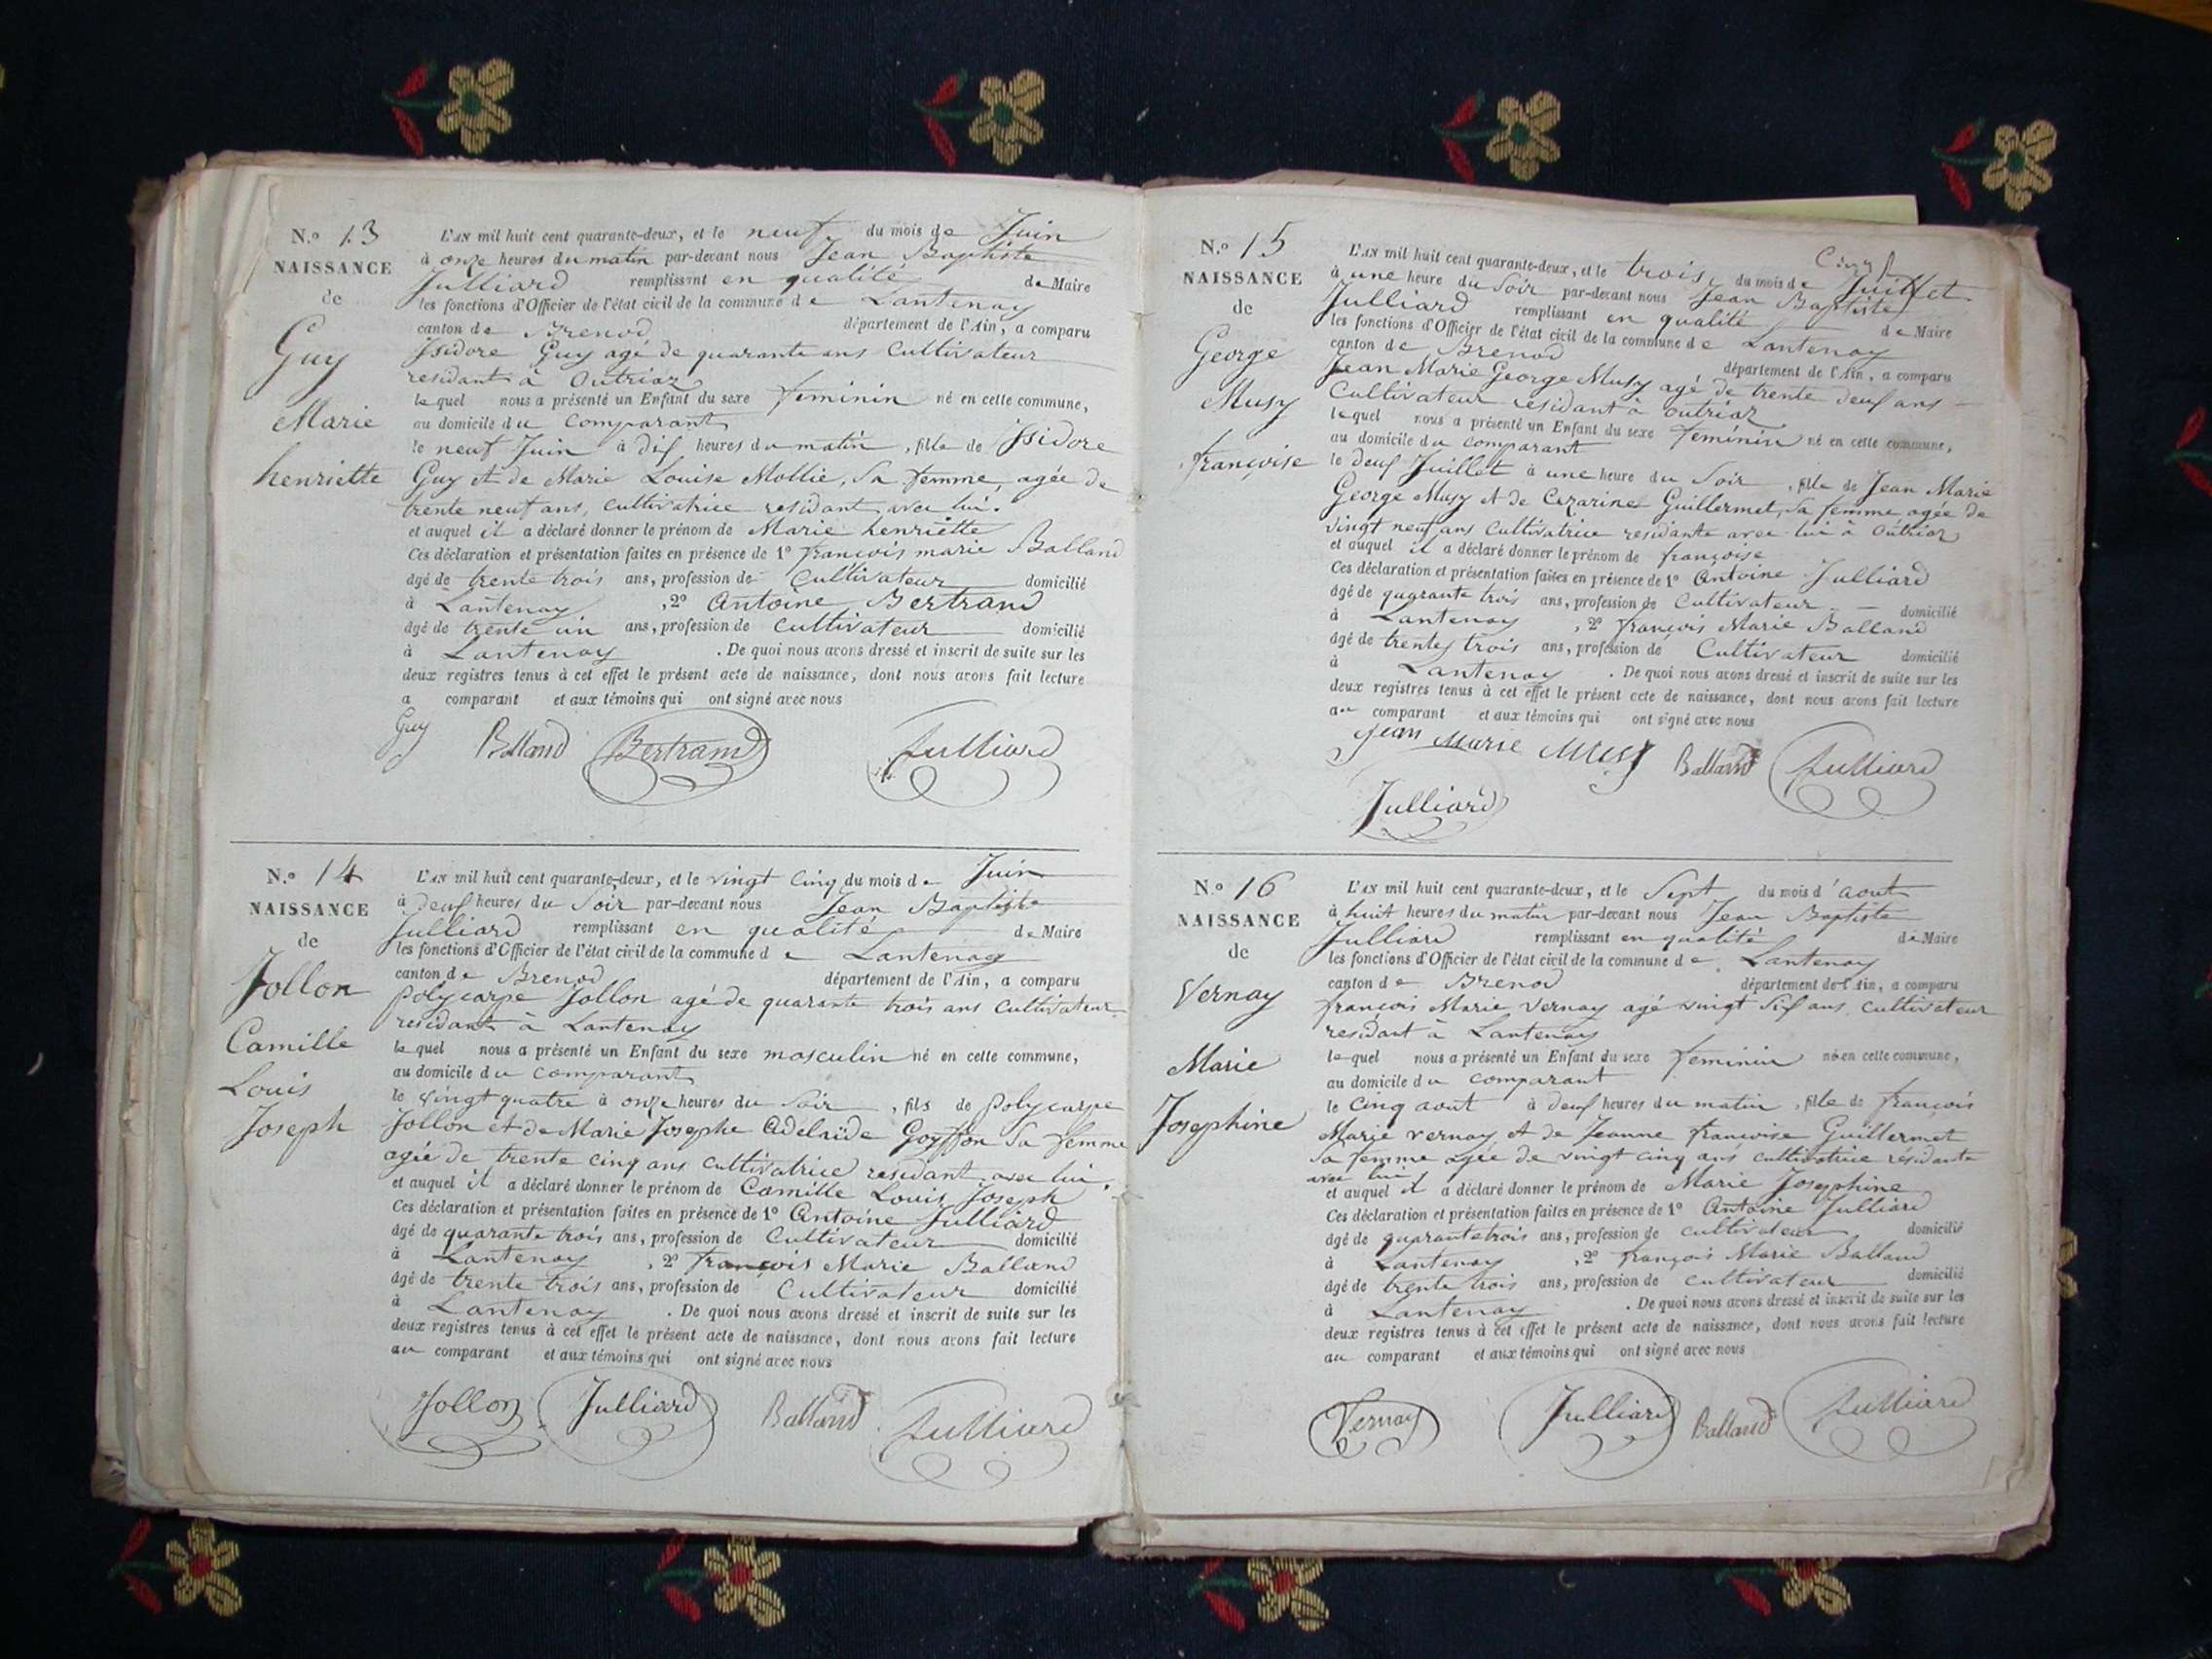 N.º 13
NAISSANCE
de
Guy
Marie
henriette
L'AN mil huit cent quarante-deux, et le neuf du mois de Juin
à onze heures du matin par-devant nous Jean Baptiste
Julliard remplissant en qualité de Maire
les fonctions d'Officier de l'état civil de la commune de Lantenay
canton de Brenod département de l'Ain, a comparu
Isidore Guy agé de quarante ans Cultivateur
residant à Outriaz
lequel nous a présenté un Enfant du sexe feminin né en cette commune,
au domicile du comparant
le neuf Juin à dix heures du matin, fille de Isidore
Guy et de Marie Louise Mollie, Sa femme, agée de
trente neuf ans, cultivatrice residant avec lui.
et auquel il a déclaré donner le prénom de Marie henriette
Ces déclaration et présentation faites en présence de 1º françois marie Balland
âgé de trente trois ans, profession de Cultivateur domicilié
à Lantenay, 2º Antoine Bertrand
âgé de trente un ans, profession de Cultivateur domicilié
à Lantenay. De quoi nous avons dressé et inscrit de suite sur les
deux registres tenus à cet effet le présent acte de naissance, dont nous avons fait lecture
a comparant et aux témoins qui ont signé avec nous
Guy Balland Bertrand Julliard
N.º 14
NAISSANCE
de
Jollon
Camille
Louis
Joseph
L'AN mil huit cent quarante-deux, et le vingt cinq du mois de Juin
à deux heures du Soir par-devant nous Jean Baptiste
Julliard remplissant en qualité de Maire
les fonctions d'Officier de l'état civil de la commune de Lantenay
canton de Brenod département de l'Ain, a comparu
polycarpe Jollon agé de quarante trois ans Cultivateur
residant à Lantenay
lequel nous a présenté un Enfant du sexe masculin né en cette commune,
au domicile du comparant
le vingt quatre à onze heures du Soir, fils de polycarpe
Jollon et de Marie Josephe Adelaïde Goyffon Sa femme
agée de trente cinq ans cultivatrice residant avec lui.
et auquel il a déclaré donner le prénom de Camille Louis Joseph
Ces déclaration et présentation faites en présence de 1º Antoine Julliard
âgé de quarante trois ans, profession de Cultivateur domicilié
à Lantenay, 2º françois Marie Balland
âgé de trente trois ans, profession de Cultivateur domicilié
à Lantenay. De quoi nous avons dressé et inscrit de suite sur les
deux registres tenus à cet effet le présent acte de naissance, dont nous avons fait lecture
au comparant et aux témoins qui ont signé avec nous
Jollon Julliard Balland Julliard
N.º 15
NAISSANCE
de
George
Musy
françoise
L'AN mil huit cent quarante-deux, et le trois du mois de Juillet
à une heure du Soir par-devant nous Jean Baptiste
Julliard remplissant en qualité de Maire
les fonctions d'Officier de l'état civil de la commune de Lantenay
canton de Brenod département de l'Ain, a comparu
Jean Marie George Musy agé de trente deux ans
Cultivateur residant à outriaz
lequel nous a présenté un Enfant du sexe feminin né en cette commune,
au domicile du comparant
le deux Juillet à une heure du Soir, fille de Jean Marie
George Musy et de Cezarine Guillermet, Sa femme agée de
vingt neuf ans Cultivatrice residante avec lui à Outriaz
et auquel il a déclaré donner le prénom de françoise
Ces déclaration et présentation faites en présence de 1º Antoine Julliard
âgé de quarante trois ans, profession de Cultivateur domicilié
à Lantenay, 2º françois Marie Balland
âgé de trente trois ans, profession de Cultivateur domicilié
à Lantenay. De quoi nous avons dressé et inscrit de suite sur les
deux registres tenus à cet effet le présent acte de naissance, dont nous avons fait lecture
au comparant et aux témoins qui ont signé avec nous
Jean Marie Musy Balland Julliard
Julliard
N.º 16
NAISSANCE
de
Vernay
Marie
Josephine
L'AN mil huit cent quarante-deux, et le Sept du mois d'aout
à huit heures du matin par-devant nous Jean Baptiste
Julliard remplissant en qualité de Maire
les fonctions d'Officier de l'état civil de la commune de Lantenay
canton de Brenod département de l'Ain, a comparu
françois Marie Vernay agé vingt Six ans cultivateur
residant à Lantenay
lequel nous a présenté un Enfant du sexe feminin né en cette commune,
au domicile du comparant
le Cinq aout à deux heures du matin, fille de françois
Marie vernay et de Jeanne françoise Guillermet
Sa femme agée de vingt cinq ans cultivatrice résidante
avec lui
et auquel il a déclaré donner le prénom de Marie Josephine
Ces déclaration et présentation faites en présence de 1º Antoine Julliard
âgé de quarante trois ans, profession de cultivateur domicilié
à Lantenay, 2º françois Marie Balland
âgé de trente trois ans, profession de cultivateur domicilié
à Lantenay. De quoi nous avons dressé et inscrit de suite sur les
deux registres tenus à cet effet le présent acte de naissance, dont nous avons fait lecture
au comparant et aux témoins qui ont signé avec nous
Vernay Julliard Balland Julliard